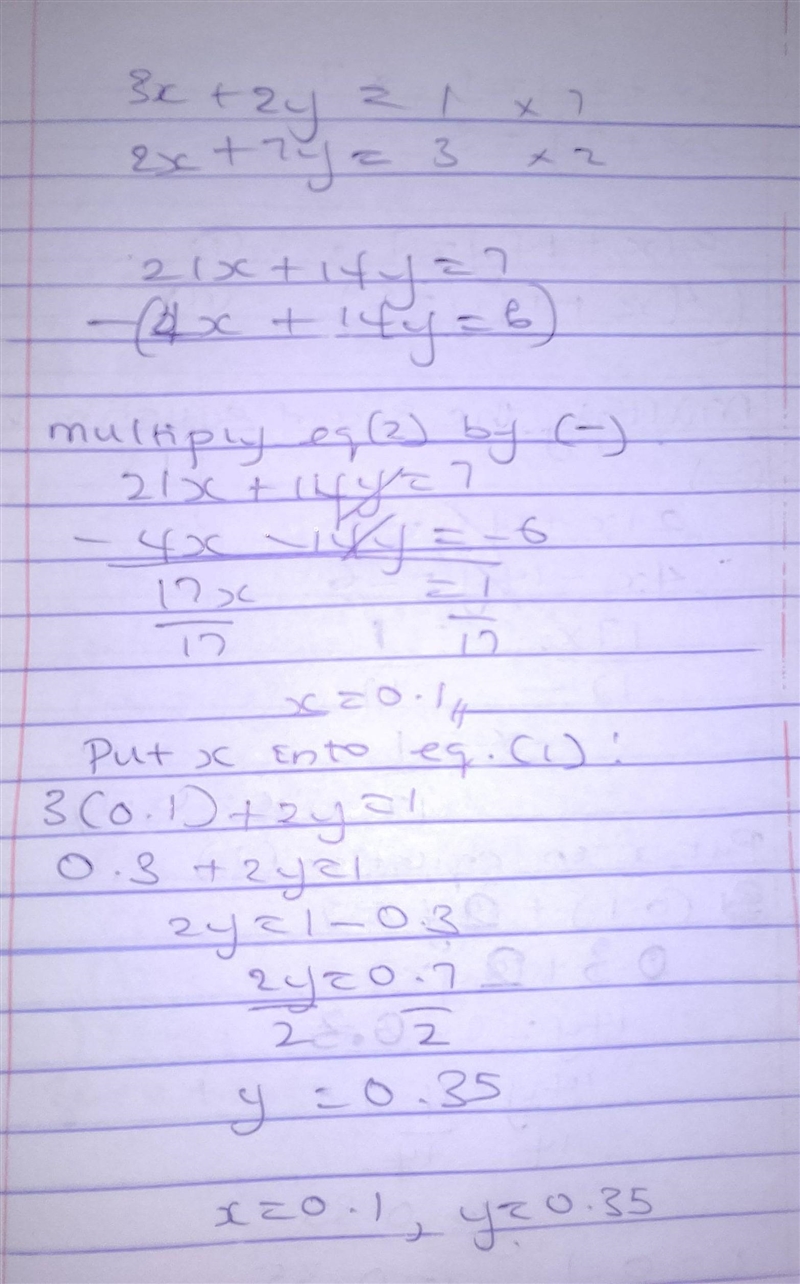 3x + 2y = 1 × 7
2x + 7y = 3 × 2
21x + 14y = 7
-(4x + 14y = 6)
multiply eq(2) by (-)
21x + 14y = 7
- 4x - 14y = -6
17x = 1
17 17
x = 0.1
Put x into eq. (1) :
3(0.1) + 2y = 1
0.3 + 2y = 1
2y = 1 - 0.3
2y = 0.7
2 2
y = 0.35
x = 0.1, y = 0.35